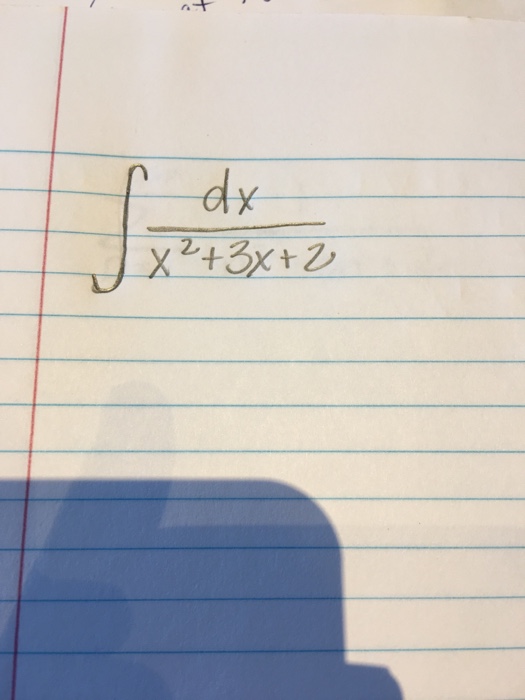 ∫ dx
x²+3x+2